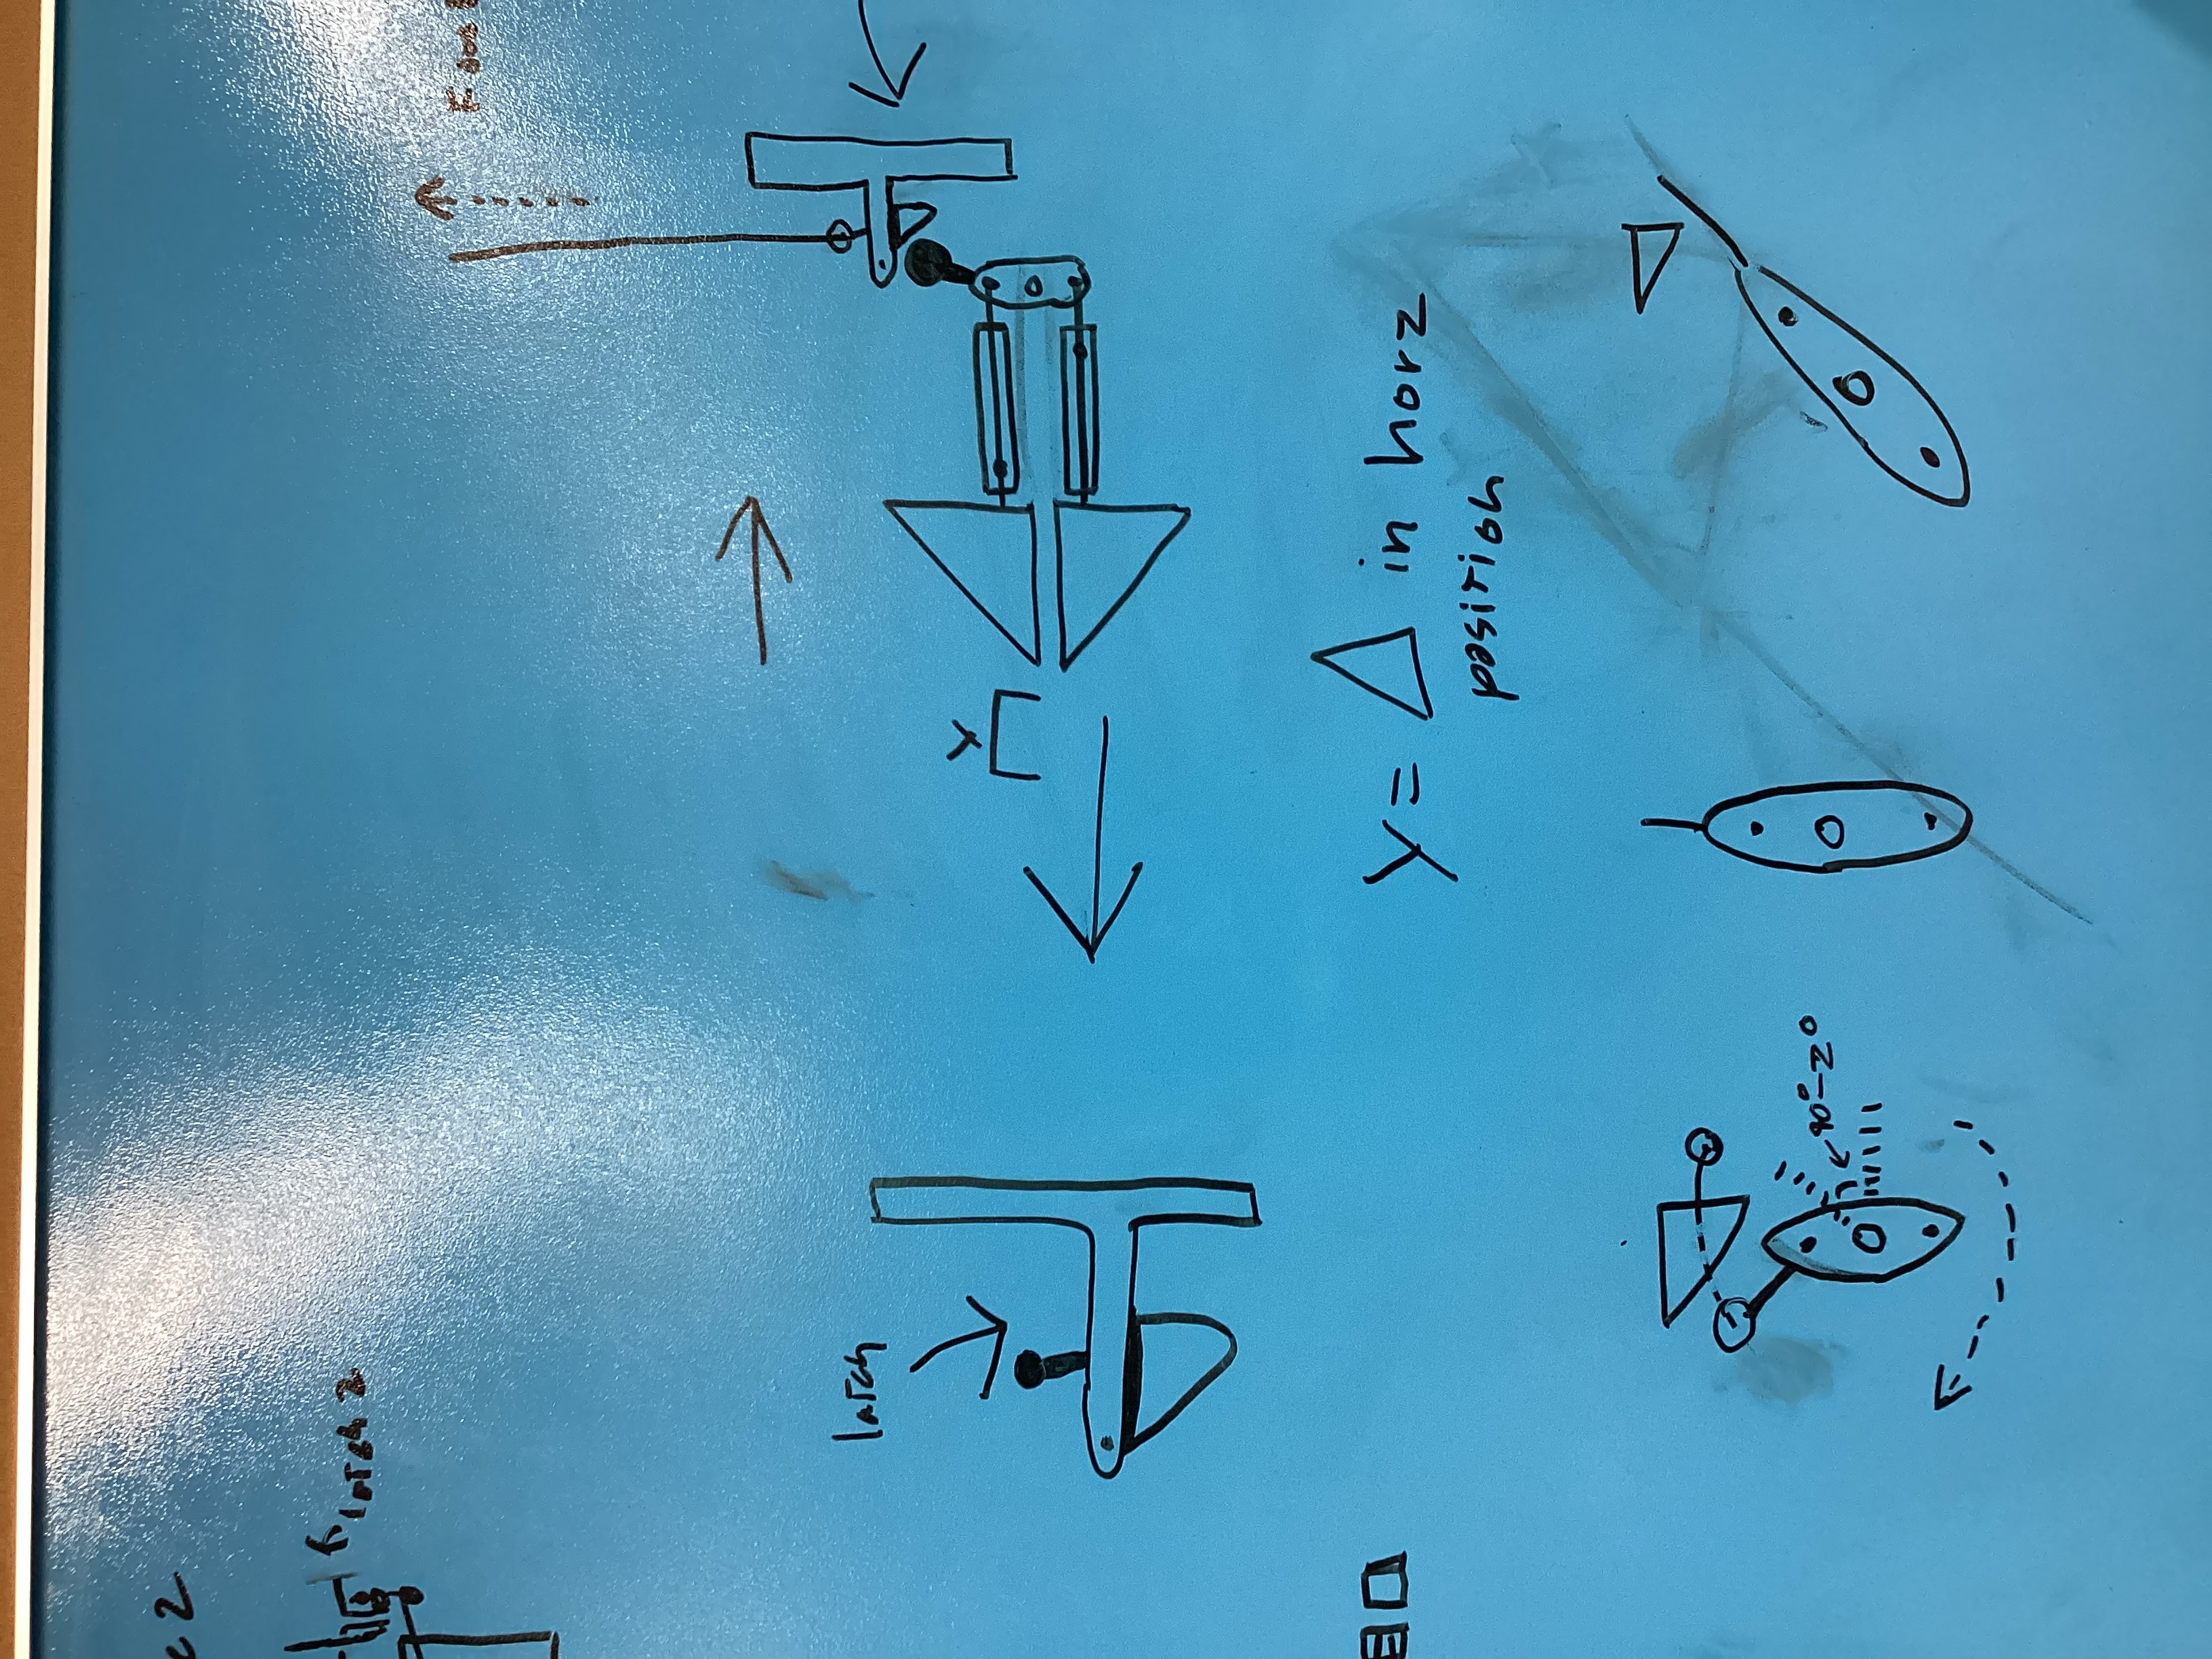 c 2
latch 2
latch
y
y = Δ in horz
position
90°-z°